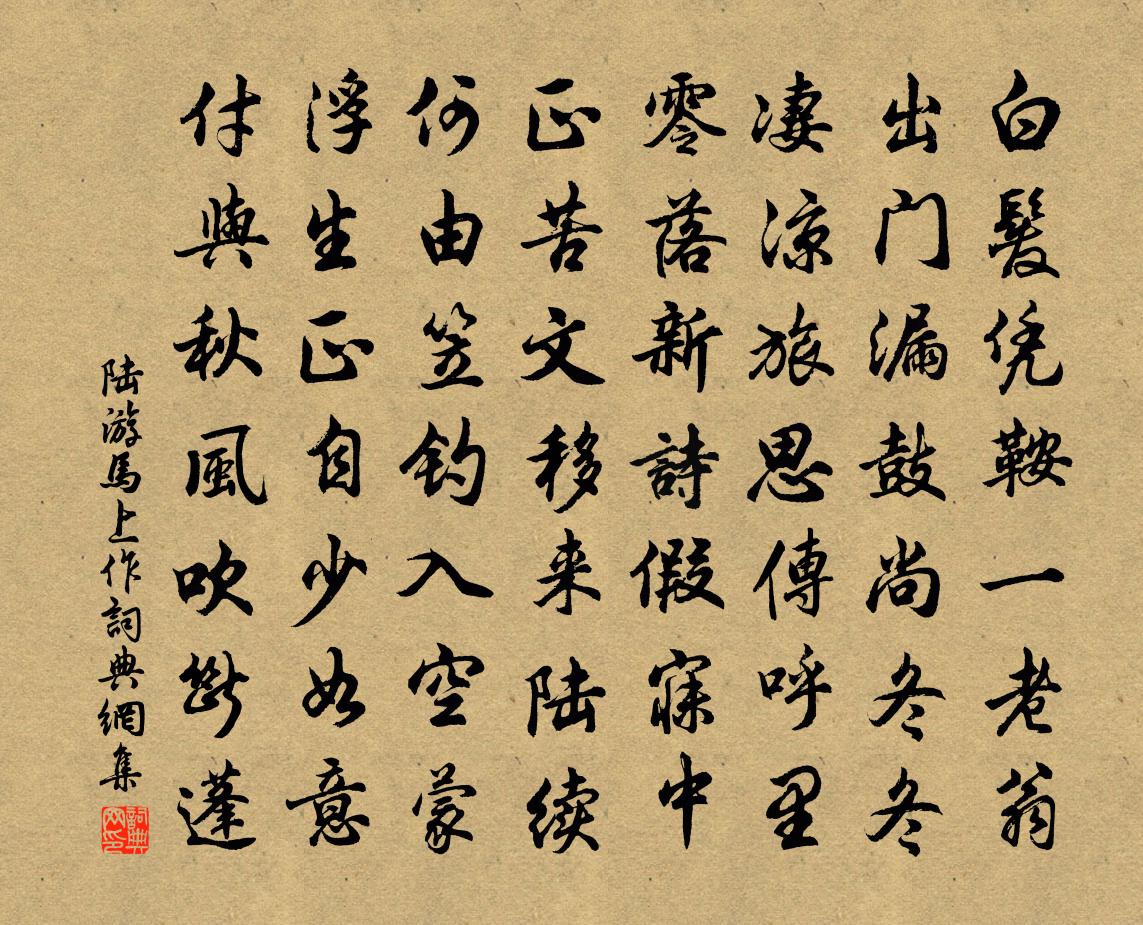 白髮凭鞍一老翁
出门漏鼓尚冬冬
凄涼旅思傳呼里
零落新詩假寐中
正苦文移来陆续
何由笠钓入空蒙
浮生正自少如意
付與秋風吹斷蓬
陆游馬上作詞典網集
詞典网印